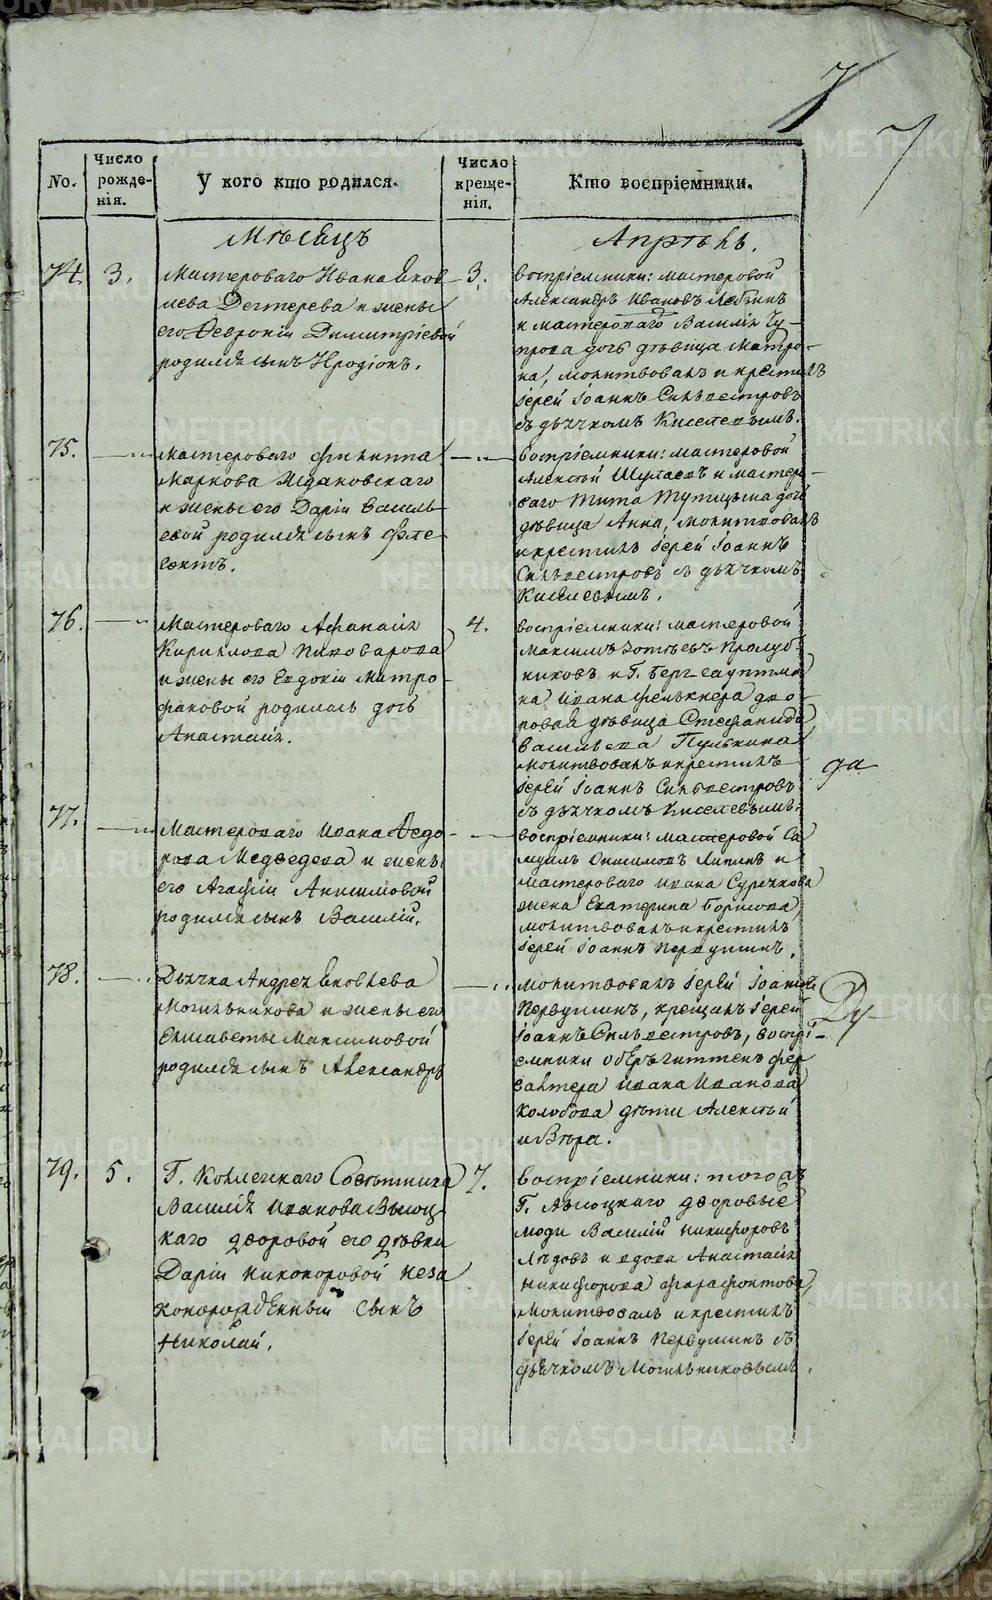 7
7
No.
Число рожде-нія.
У кого кто родился.
Число креще-нія.
Кто воспріемники.
Мѣсяцъ
Апрѣль.
74.
3.
Мастероваго Ивана Яков
лева Дегтерева и жены
его Февроніи Димитріевой
родился сынъ Иродіонъ.
3.
воспріемники: мастеровой
Александръ Ивановъ
и мастероваго Василія Чу-
прова дочь дѣвица Матро-
на, молитвовалъ и крестилъ
Іерей Іоаннъ Сильвестровъ
съ дьячкомъ Киселевымъ.
75.
Мастероваго Филиппа
Маркова Ждановскаго
и жены его Даріи Василь
евой родился сынъ Фле
гонтъ.
воспріемники: мастеровой
Алексѣй и мастеро-
ваго Тита дочь
дѣвица Анна, молитвовалъ
и крестилъ Іерей Іоаннъ
Сильвестровъ съ дьячкомъ
Киселевымъ.
76.
Мастероваго Афанасія
Кирилова Пивоварова
и жены его Евдокіи Митро-
фановой родилась дочь
Анастасія.
4.
воспріемники: мастеровой
Максимъ Зотѣевъ Пролуб
никовъ и Г. Берг-гауптма
на Ивана Фелькнера дво-
ровая дѣвица Стефанида
Васильева Пулькина
молитвовалъ и крестилъ
Іерей Іоаннъ Сильвестровъ
съ дьячкомъ Киселевымъ.
77.
Мастероваго Ивана Федо-
рова Медведева и жены
его Агафіи Анисимовой
родился сынъ Василій.
воспріемники: мастеровой Са
муилъ Онисимовъ Липинъ и
мастероваго Ивана Суречкова
жена Екатерина Борисова,
молитвовалъ и крестилъ
Іерей Іоаннъ Первушинъ.
78.
Дьячка Андрея Яковлева
Могильникова и жены его
Елисаветы Максимовой
родился сынъ Александръ
молитвовалъ Іерей Іоаннъ
Первушинъ, крещалъ Іерей
Іоаннъ Сильвестровъ, воспрі-
емники обергиттенфер
валтера Ивана Иванова
Колобова дѣти Алексѣй
и Вѣра.
79.
5.
Г. Коллежскаго Совѣтника
Василія Иванова Высоц
каго дворовой его дѣвки
Даріи Никоноровой неза
конорожденный сынъ
Николай.
7.
воспріемники: тогожъ
Г. Высоцкаго дворовые
люди Василій Никифоровъ
Лѣдовъ и вдова Анастасія
Никифорова Фарафонтова,
Молитвовалъ и крестилъ
Іерей Іоаннъ Первушинъ съ
дьячкомъ Могильниковымъ.
METRIKI.GASO-URAL.RU